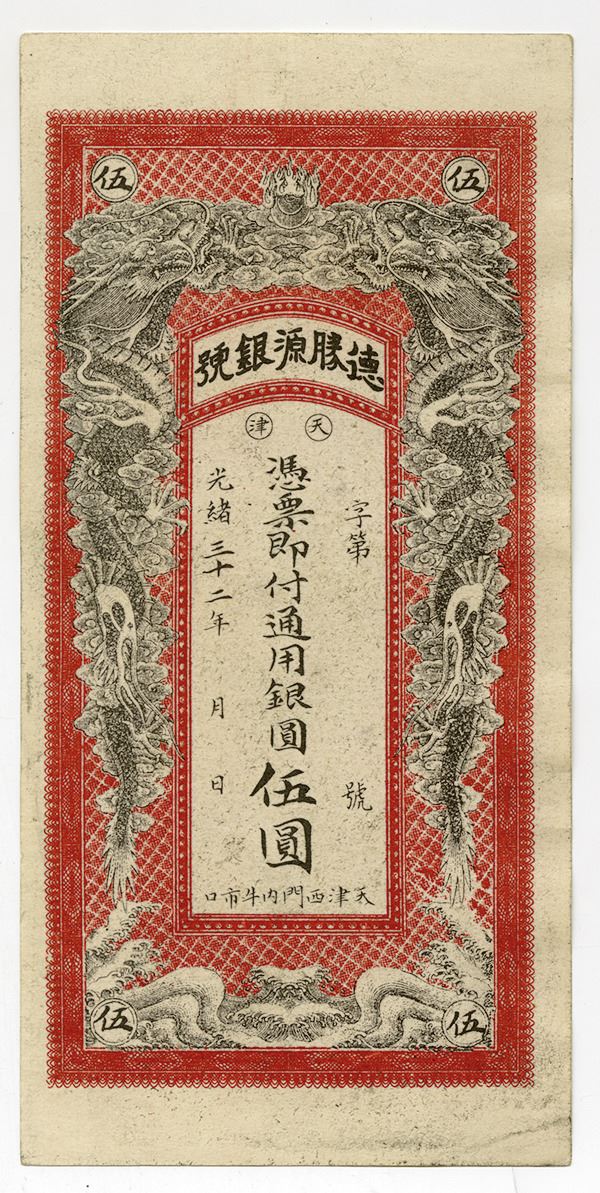 伍 伍
德勝源銀號
天津
字第 號
憑票即付通用銀圓伍圓
光緒三十二年 月 日
天津西門內牛市口
伍 伍